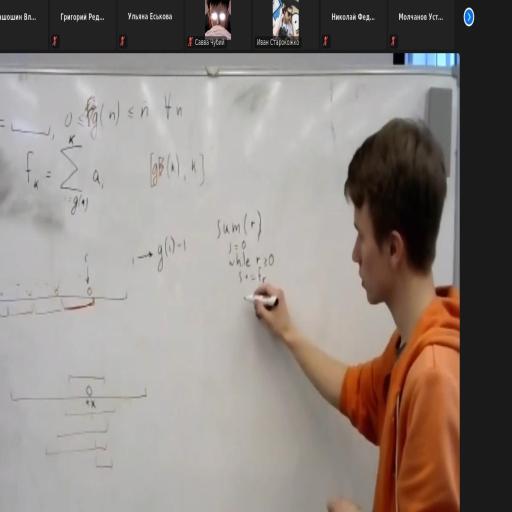 ашошин Вл...
Григорий Ред...
Ульяна Еськова
Савва Чубий
Иван Старокожко
Николай Фед...
Молчанов Уст...
0 ≤ g(n) ≤ n ∀ n
K
f_k = ∑ a_i [g(k), k]
i=g(k)
i → g(i)-1
sum(r)
s=0
while r ≥ 0
s += f_r
r
0
0
+x